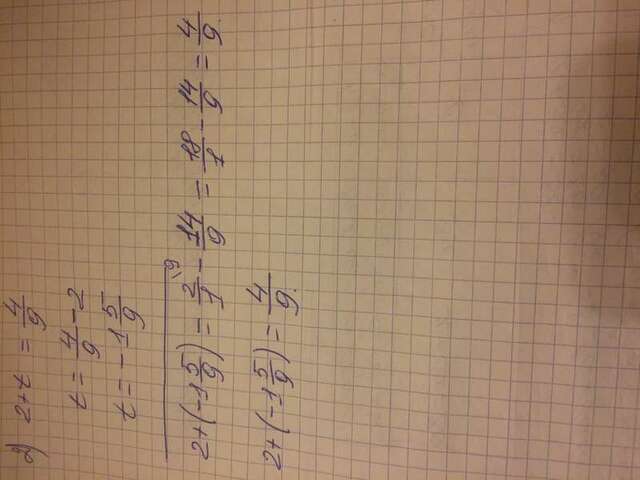 2) 2+t = 4/9
t = 4/9 - 2
t = -1 5/9
2+(-1 5/9) = 2/1 \9 - 14/9 = 18/1 - 14/9 = 4/9.
2+(-1 5/9) = 4/9.